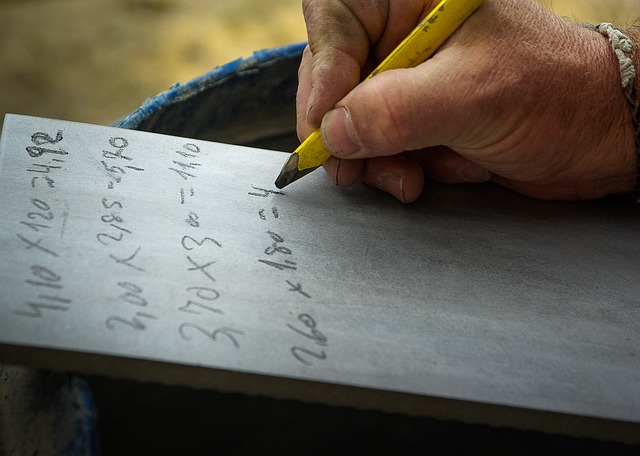 4,10 X 120 = 4,92
2,00 X 2,85 = 5,70
3,70 X 3 00 = 11,10
2,60 x 1,80 = 4